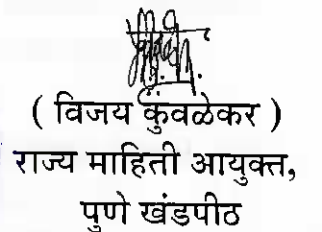 ( विजय कुंवळेकर )
राज्य माहिती आयुक्त,
पुणे खंडपीठ